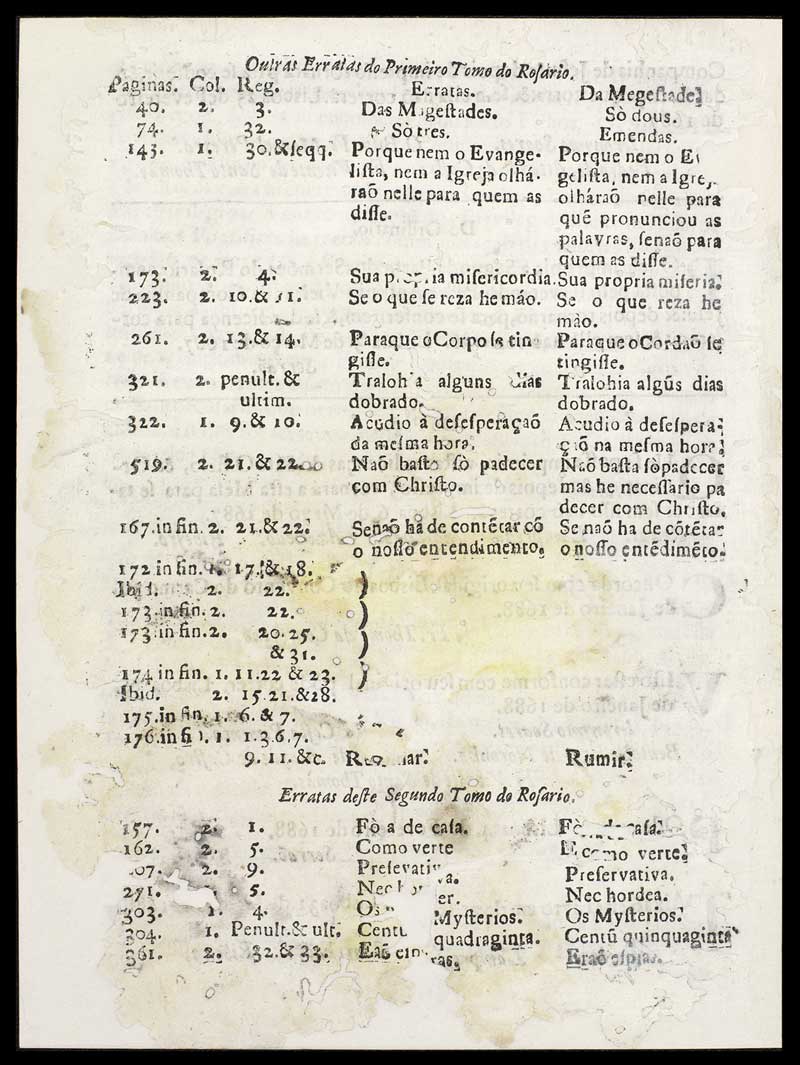 Outras Erratas do Primeiro Tomo do Rosario.
Paginas. Col. Reg. Erratas. Da Megeſtade.
40. 2. 3. Das Mageſtades. Sò dous.
74. 1. 32. Sò tres. Emendas.
143. 1. 30.&ſeqq. Porque nem o Evange- Porque nem o
liſta, nem a Igreja olhá- geliſta, nem a
raõ nelle para quem as olháraõ nelle para
diſſe. quẽ pronunciou as
palavras, ſenaõ para
quem as diſſe.
173. 2. 4. Sua miſericordia. Sua propria miſeria.
223. 2. 10.& 11. Se o que ſe reza he máo. Se o que reza he
máo.
261. 2. 13.& 14. Paraque o Corpo ſe tin- Paraque o Cordaõ ſe
giſſe. tingiſſe.
321. 2. penult.& Tralohia alguns dias Tralohia algũs dias
ultim. dobrado. dobrado.
322. 1. 9.& 10. Acudio à deſeſperaçaõ Acudio à deſeſpera-
da meſma hora. çaõ na meſma hora.
519. 2. 21.& 22. Naõ baſta ſò padecer Naõ baſta ſò padecer
com Chriſto. mas he neceſſario pa
decer com Chriſto.
167.in fin. 2. 21.& 22. Senaõ há de contẽtar cõ Se naõ ha de cõtẽtar
o noſſo entendimento. o noſſo entẽdimẽto.
172 in fin. 1. 17.& 18.
Ibid. 2. 22.
173.in fin. 2. 22.
173.in fin. 2. 20.25.
& 31.
174 in fin. 1. 11.22 & 23.
Ibid. 2. 15.21.&28.
175.in fin. 1. 6.& 7.
176.in fin. 1. 1.3.6.7.
9. 11.&c. Rumir.
Erratas deſte Segundo Tomo do Roſario.
157. 2. 1. Fò a de caſa.
162. 2. 5. Como verte como verte.
2. 9. Preſervativa. Preſervativa.
271. 5. Nec hordea.
303. 1. 4. Os Myſterios. Os Myſterios.
304. 1. Penult.& ult. Centũ quadraginta. Centũ quinquaginta
361. 2. 32.& 33. Eraõ eſpias.